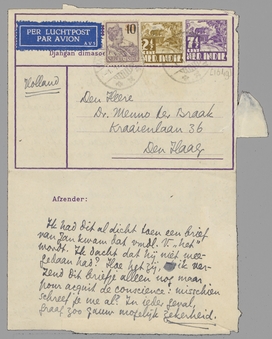 PER LUCHTPOST
PAR AVION
10
2½
7½
NED. INDIË
NED. INDIË
Djangan dimasoe
Holland
Den Heere
Dr. Menno ter Braak
Kraaienlaan 36
Den Haag
Afzender:
Ik had dit al dicht toen een brief
van Jan kwam dat vmdl. V. „het"
wordt. Ik dacht dat hij niet mee-
gedaan had? Hoe het zij, ik ver-
zend dit briefje alleen nog maar
pour acquit de conscience: misschien
schreef je me al. In ieder geval,
graag zoo gauw mogelijk zekerheid.